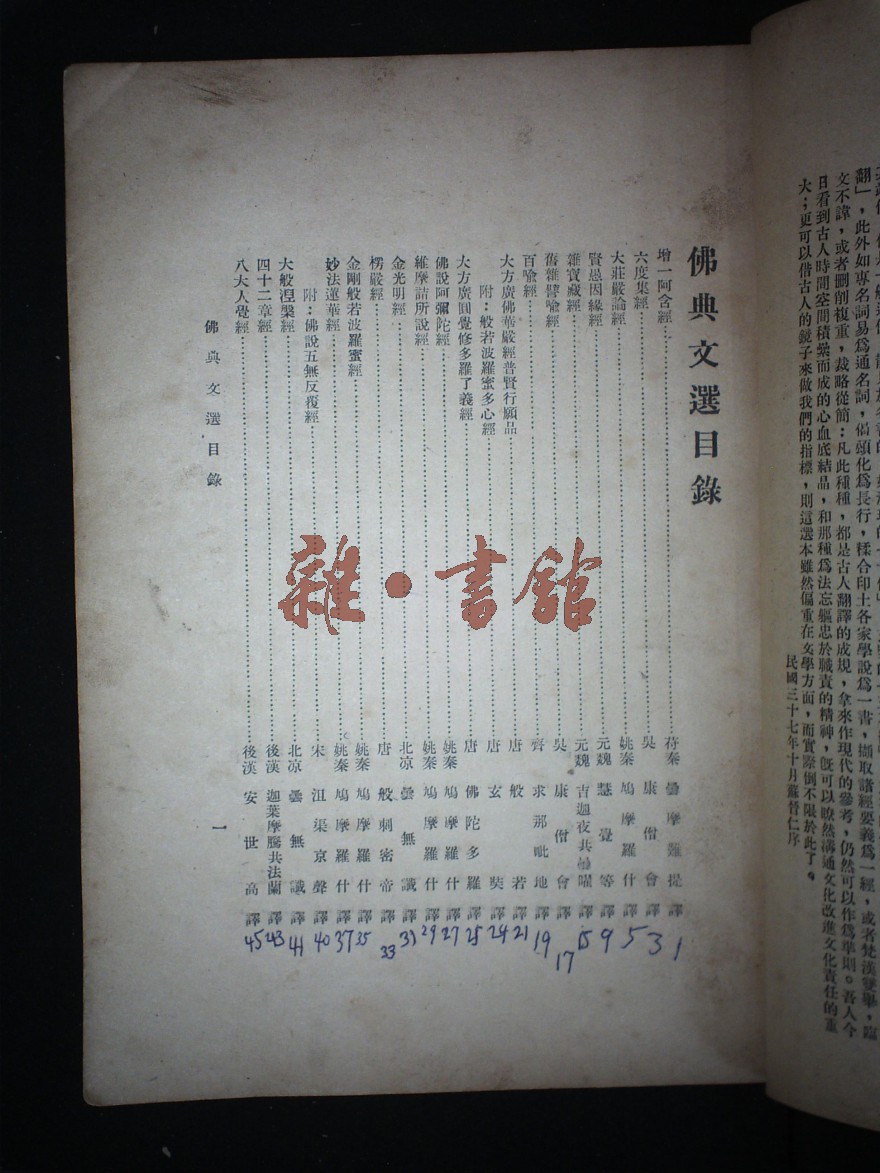 翻」,此外如專名詞易爲通名詞,偈頌化爲長行,糅合印土各家學說爲一書,擷取諸經要義爲一經,或者梵漢雙舉,臨
文不諱,或者刪削複重,裁略從簡:凡此種種,都是古人翻譯的成規,拿來作現代的參考,仍然可以作爲準則。吾人今
日看到古人時間空間積櫐而成的心血底結品,和那種爲法忘軀忠於職責的精神,旣可以瞭然溝通文化改進文化責任的重
大;更可以借古人的鏡子來做我們的指標,則這選本雖然偏重在文學方面,而實際倒不限於此了。
民國三十七年十月蘇晉仁序
佛典文選目錄
增一阿含經 苻秦 曇摩難提 譯 1
六度集經 吳 康僧會 譯 3
大莊嚴論經 姚秦 鳩摩羅什 譯 5
賢愚因緣經 元魏 慧覺等 譯 9
雜寶藏經 元魏 吉迦夜共曇曜 譯 15
舊雜譬喻經 吳 康僧會 譯 17
百喻經 齊 求那毗地 譯 19
大方廣佛華嚴經普賢行願品 唐 般若 譯 21
附:般若波羅蜜多心經 唐 玄奘 譯 24
大方廣圓覺修多羅了義經 唐 佛陀多羅 譯 25
佛說阿彌陀經 姚秦 鳩摩羅什 譯 27
維摩詰所說經 姚秦 鳩摩羅什 譯 29
金光明經 北凉 曇無讖 譯 31
楞嚴經 唐 般剌密帝 譯 33
金剛般若波羅蜜經 姚秦 鳩摩羅什 譯 35
妙法蓮華經 姚秦 鳩摩羅什 譯 37
附:佛說五無反復經 宋 沮渠京聲 譯 40
大般涅槃經 北凉 曇無讖 譯 41
四十二章經 後漢 迦葉摩騰共法蘭 譯 43
八大人覺經 後漢 安世高 譯 45
佛典文選目錄 一
雜·書館